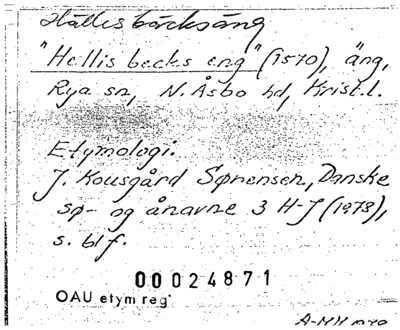 Hällisbäcksäng
"Hellis becks eng" (1570), äng,
Rya sn, N. Åsbo hd, Krist.l.
Etymologi.
J. Kousgård Sørensen, Danske
sø- og ånavne 3 H-J (1978),
s. 61 f.
00024871
OAU etym reg